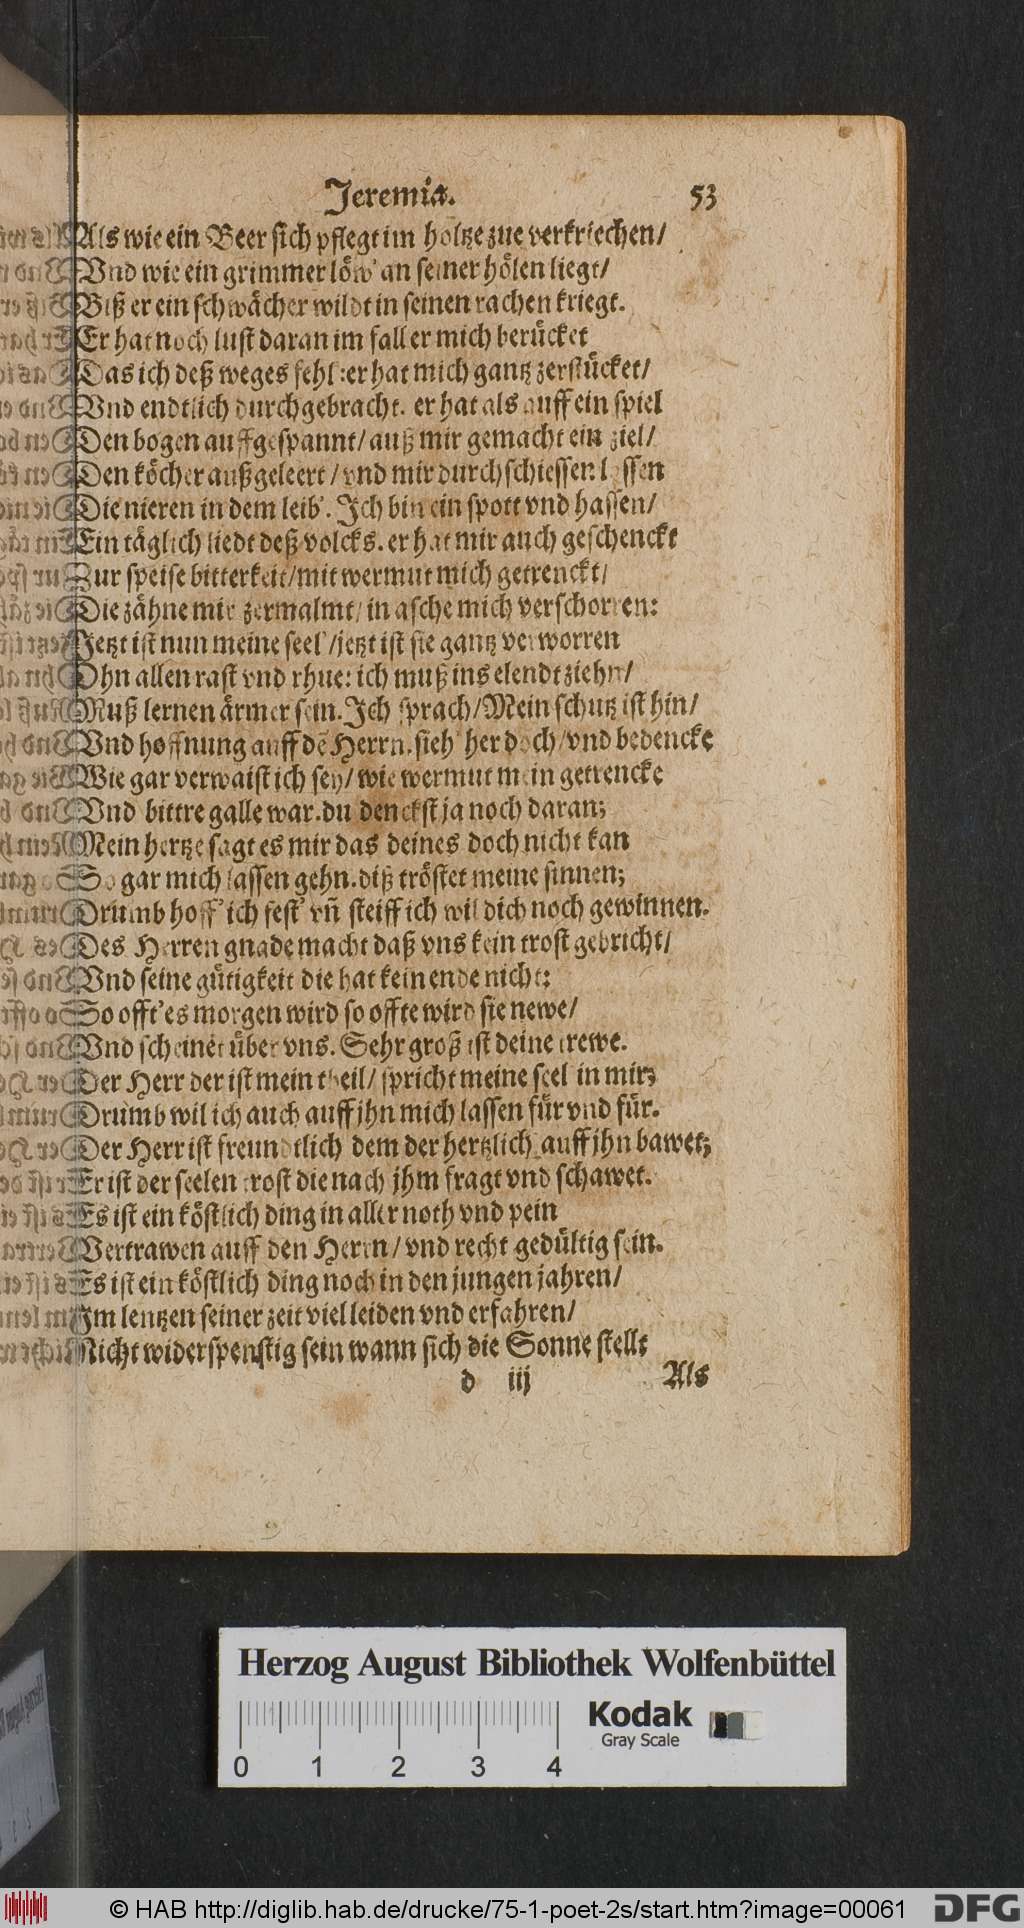 Jeremia. 53
Als wie ein Beer sich pflegt im holtze zue verkriechen/
Vnd wie ein grimmer löw' an seiner hölen liegt/
Biß er ein schwächer wildt in seinen rachen kriegt.
Er hat noch lust daran im fall er mich berücket
Das ich deß weges fehl: er hat mich gantz zerstücket/
Vnd endtlich durchgebracht. er hat als auff ein spiel
Den bogen auffgespannt/ auß mir gemacht ein ziel/
Den köcher außgeleert/ vnd mir durchschiessen lassen
Die nieren in dem leib'. Ich bin ein spott vnd hassen/
Ein täglich liedt deß volcks. er hat mir auch geschenckt
Zur speise bitterkeit/ mit wermut mich getrenckt/
Die zähne mir zermalmt/ in asche mich verschorren:
Jetzt ist nun meine seel'/ jetzt ist sie gantz verworren
Ohn allen rast vnd rhue: ich muß ins elendt ziehn/
Muß lernen ärmer sein. Ich sprach/ Mein schutz ist hin/
Vnd hoffnung auff dē Herrn. sieh' her doch/ vnd bedencke
Wie gar verwaist ich sey/ wie wermut mein getrencke
Vnd bittre galle war. du denckst ja noch daran;
Mein hertze sagt es mir das deines doch nicht kan
So gar mich lassen gehn. diß tröstet meine sinnen;
Drumb hoff' ich fest' vñ steiff ich wil dich noch gewinnen.
Des Herren gnade macht daß vns kein trost gebricht/
Vnd seine gütigkeit die hat kein ende nicht:
So offt' es morgen wird so offte wird sie newe/
Vnd scheinet über vns. Sehr groß ist deine trewe.
Der Herr der ist mein theil/ spricht meine seel in mir;
Drumb wil ich auch auff jhn mich lassen für vnd für.
Der Herr ist freundtlich dem der hertzlich auff jhn bawet;
Er ist der seelen trost die nach jhm fragt vnd schawet.
Es ist ein köstlich ding in aller noth vnd pein
Vertrawen auff den Herrn/ vnd recht gedültig sein.
Es ist ein köstlich ding noch in den jungen jahren/
Im lentzen seiner zeit viel leiden vnd erfahren/
Nicht widerspenstig sein wann sich die Sonne stellt
d iij Als
Herzog August Bibliothek Wolfenbüttel
Kodak
Gray Scale
0 1 2 3 4
© HAB http://diglib.hab.de/drucke/75-1-poet-2s/start.htm?image=00061 DFG